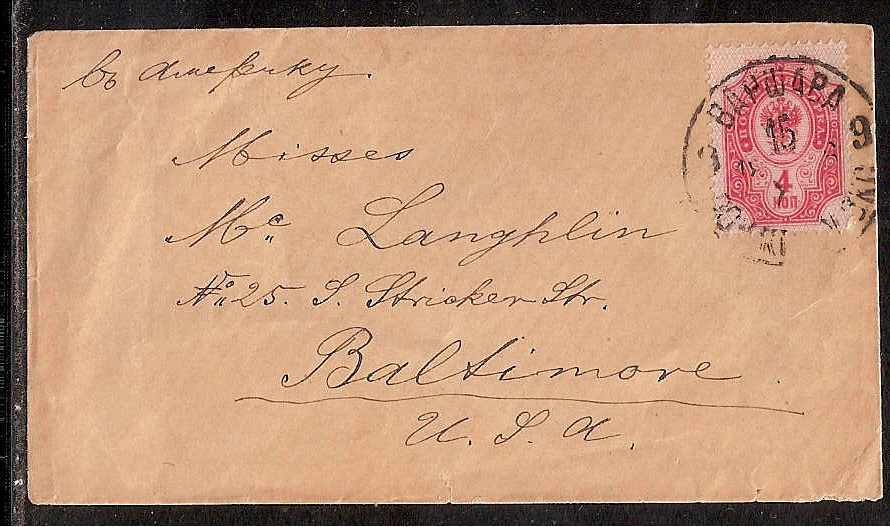 въ Америку.
Misses
Mc. Langhlin
No 25. S. Stricker Str.
Baltimore
U. S. A.
ВАРШАВА
15
9
4
КОП